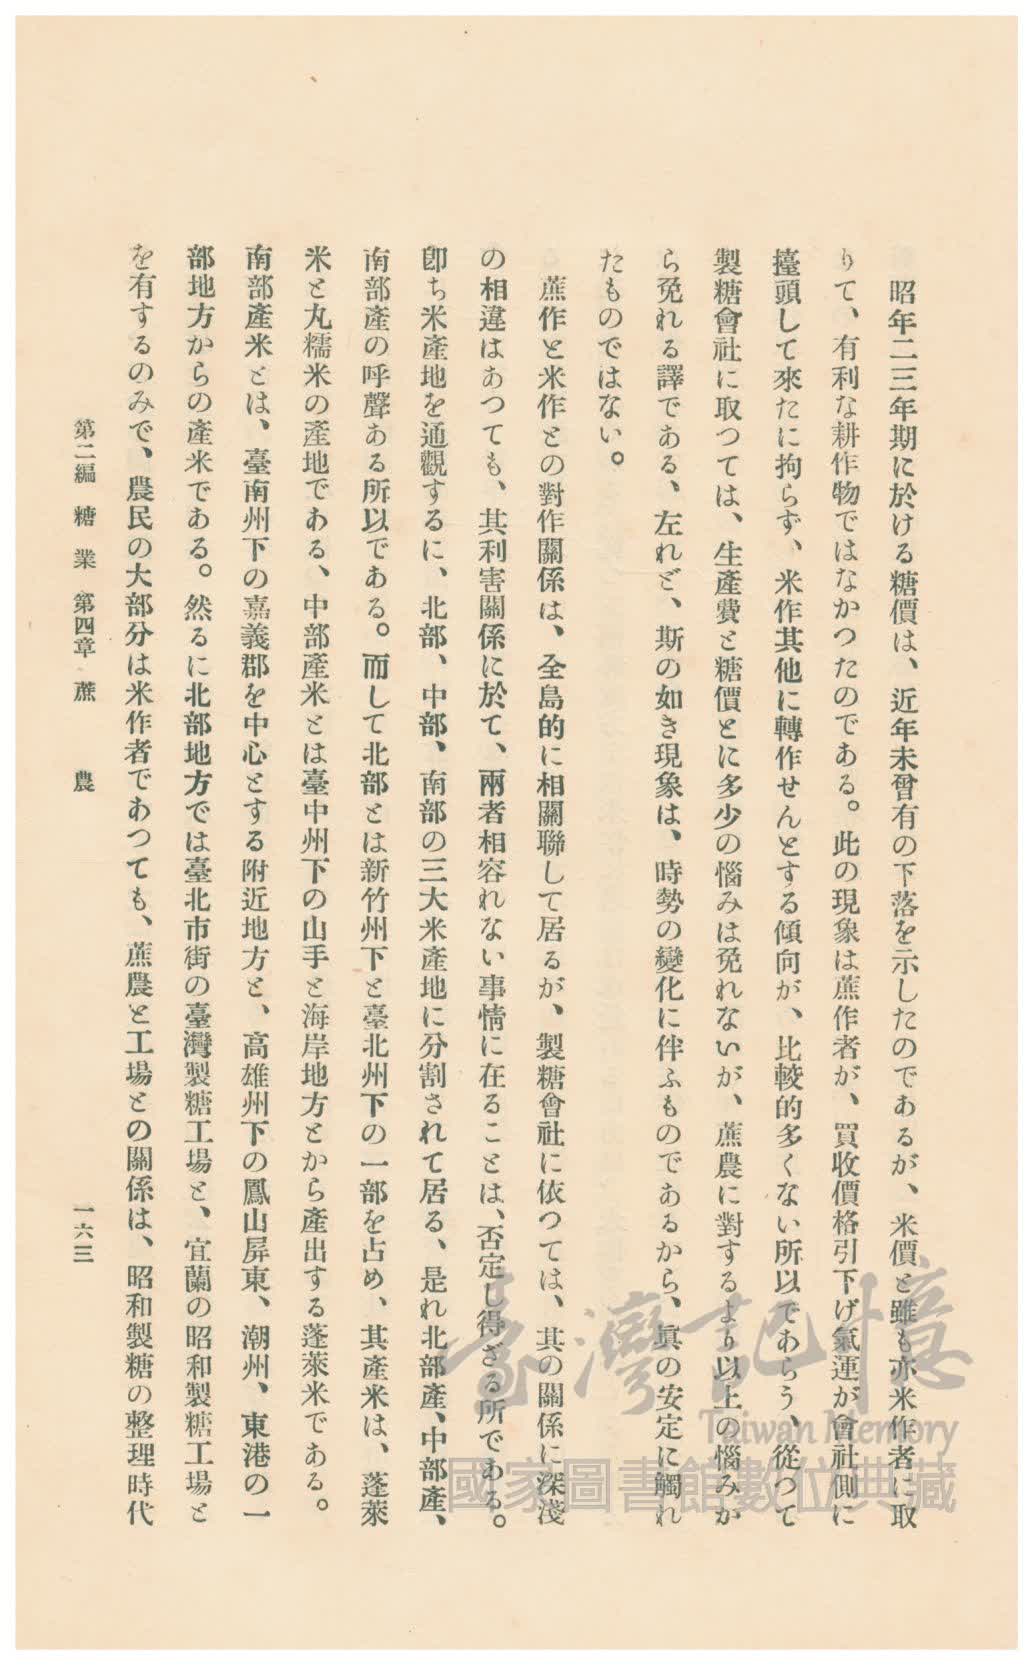 昭年二三年期に於ける糖價は、近年未曾有の下落を示したのであるが、米價と雖も亦米作者に取
りて、有利な耕作物ではなかつたのである。此の現象は蔗作者が、買收價格引下げ氣運が會社側に
擡頭して來たに拘らず、米作其他に轉作せんとする傾向が、比較的多くない所以であらう、從つて
製糖會社に取つては、生產費と糖價とに多少の惱みは免れないが、蔗農に對するより以上の惱みか
ら免れる譯である、左れど、斯の如き現象は、時勢の變化に伴ふものであるから、眞の安定に觸れ
たものではない。
蔗作と米作との對作關係は、全島的に相關聯して居るが、製糖會社に依つては、其の關係に深淺
の相違はあつても、其利害關係に於て、兩者相容れない事情に在ることは、否定し得ざる所である。
卽ち米產地を通觀するに、北部、中部、南部の三大米產地に分割されて居る、是れ北部產、中部產、
南部產の呼聲ある所以である。而して北部とは新竹州下と臺北州下の一部を占め、其產米は、蓬萊
米と丸糯米の產地である、中部產米とは臺中州下の山手と海岸地方とから產出する蓬萊米である。
南部產米とは、臺南州下の嘉義郡を中心とする附近地方と、高雄州下の鳳山屏東、潮州、東港の一
部地方からの產米である。然るに北部地方では臺北市街の臺灣製糖工場と、宜蘭の昭和製糖工場と
を有するのみで、農民の大部分は米作者であつても、蔗農と工場との關係は、昭和製糖の整理時代
第二編 糖業 第四章 蔗農 一六三
臺灣記憶
Taiwan Memory
國家圖書館數位典藏